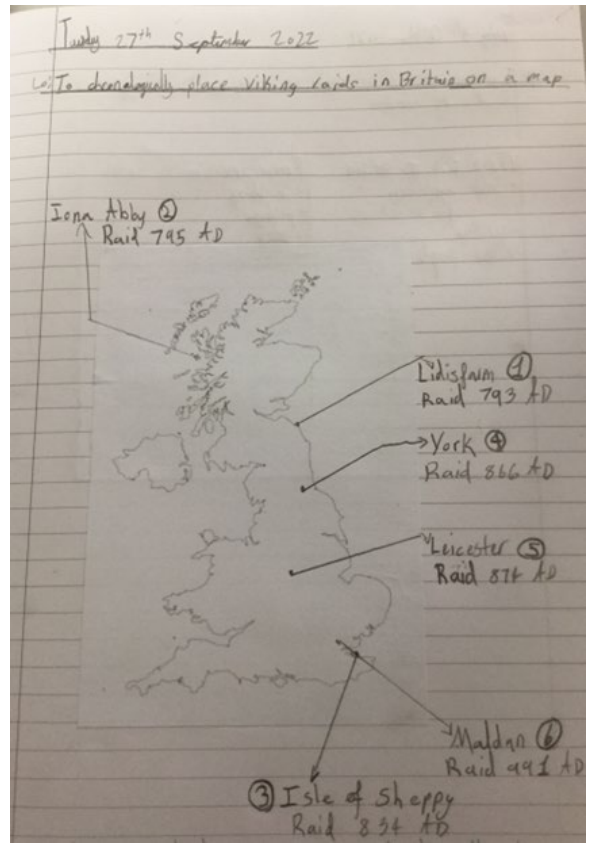 Tuesday 27th September 2022
L.O: To chronologically place Viking raids in Britain on a map
Iona Abby ②
Raid 795 AD
Lidisfarn ①
Raid 793 AD
York ④
Raid 866 AD
Leicester ⑤
Raid 874 AD
Maldan ⑥
Raid 991 AD
③ Isle of Sheppy
Raid 834 AD